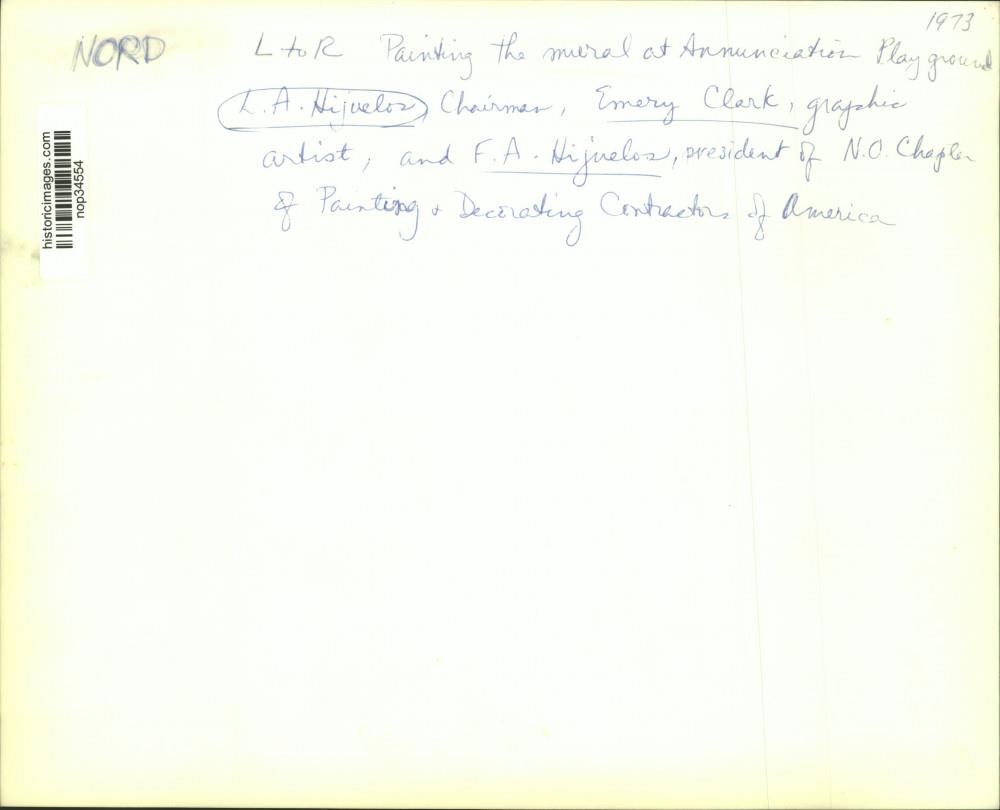 1973
NORD
L to R Painting the mural at Annunciation Playground
L. A. Hijuelos, Chairman, Emery Clark, graphic
artist, and F. A. Hijuelos, president of N.O. Chapter
of Painting & Decorating Contractors of America
historicimages.com
nop34554